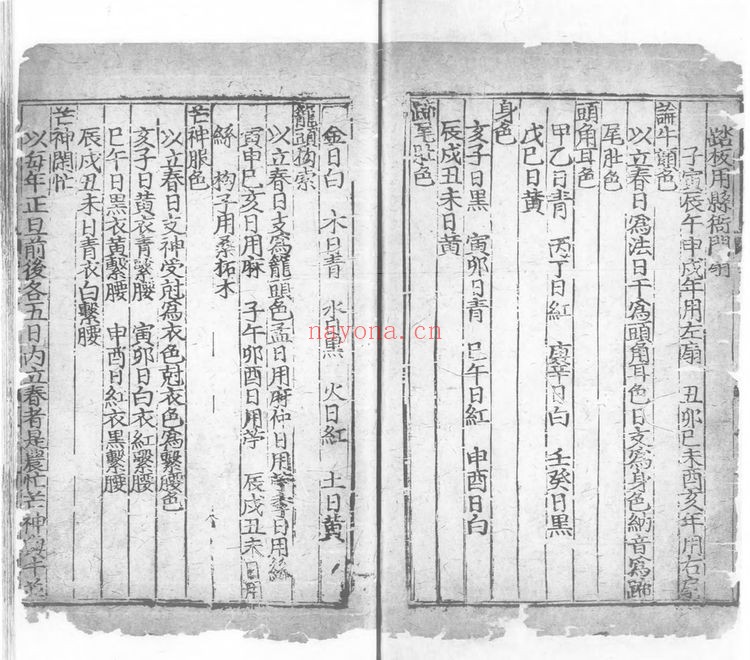 踏板用縣衙門扇
子寅辰午申戌年用左扇 丑卯巳未酉亥年用右扇
論牛顔色
以立春日爲法日干爲頭角耳色日支爲身色納音爲蹄
尾肚色
頭角耳色
甲乙日青 丙丁日紅 庚辛日白 壬癸日黑
戊己日黄
身色
亥子日黑 寅卯日青 巳午日紅 申酉日白
辰戌丑未日黄
蹄尾肚色
金日白 木日青 水日黑 火日紅 土日黄
籠頭拘索
以立春日支爲籠頭色孟日用麻仲日用苧季日用絲
寅申巳亥日用麻 子午卯酉日用苧 辰戌丑未日用
絲 拘子用桑拓木
芒神服色
以立春日支神受尅爲衣色尅衣色爲繫腰色
亥子日黄衣青繫腰 寅卯日白衣紅繫腰
巳午日黑衣黄繫腰 申酉日紅衣黑繫腰
辰戌丑未日青衣白繫腰
芒神閑忙
以每年正旦前後各五日内立春者是農忙芒神與牛並
nayona.cn